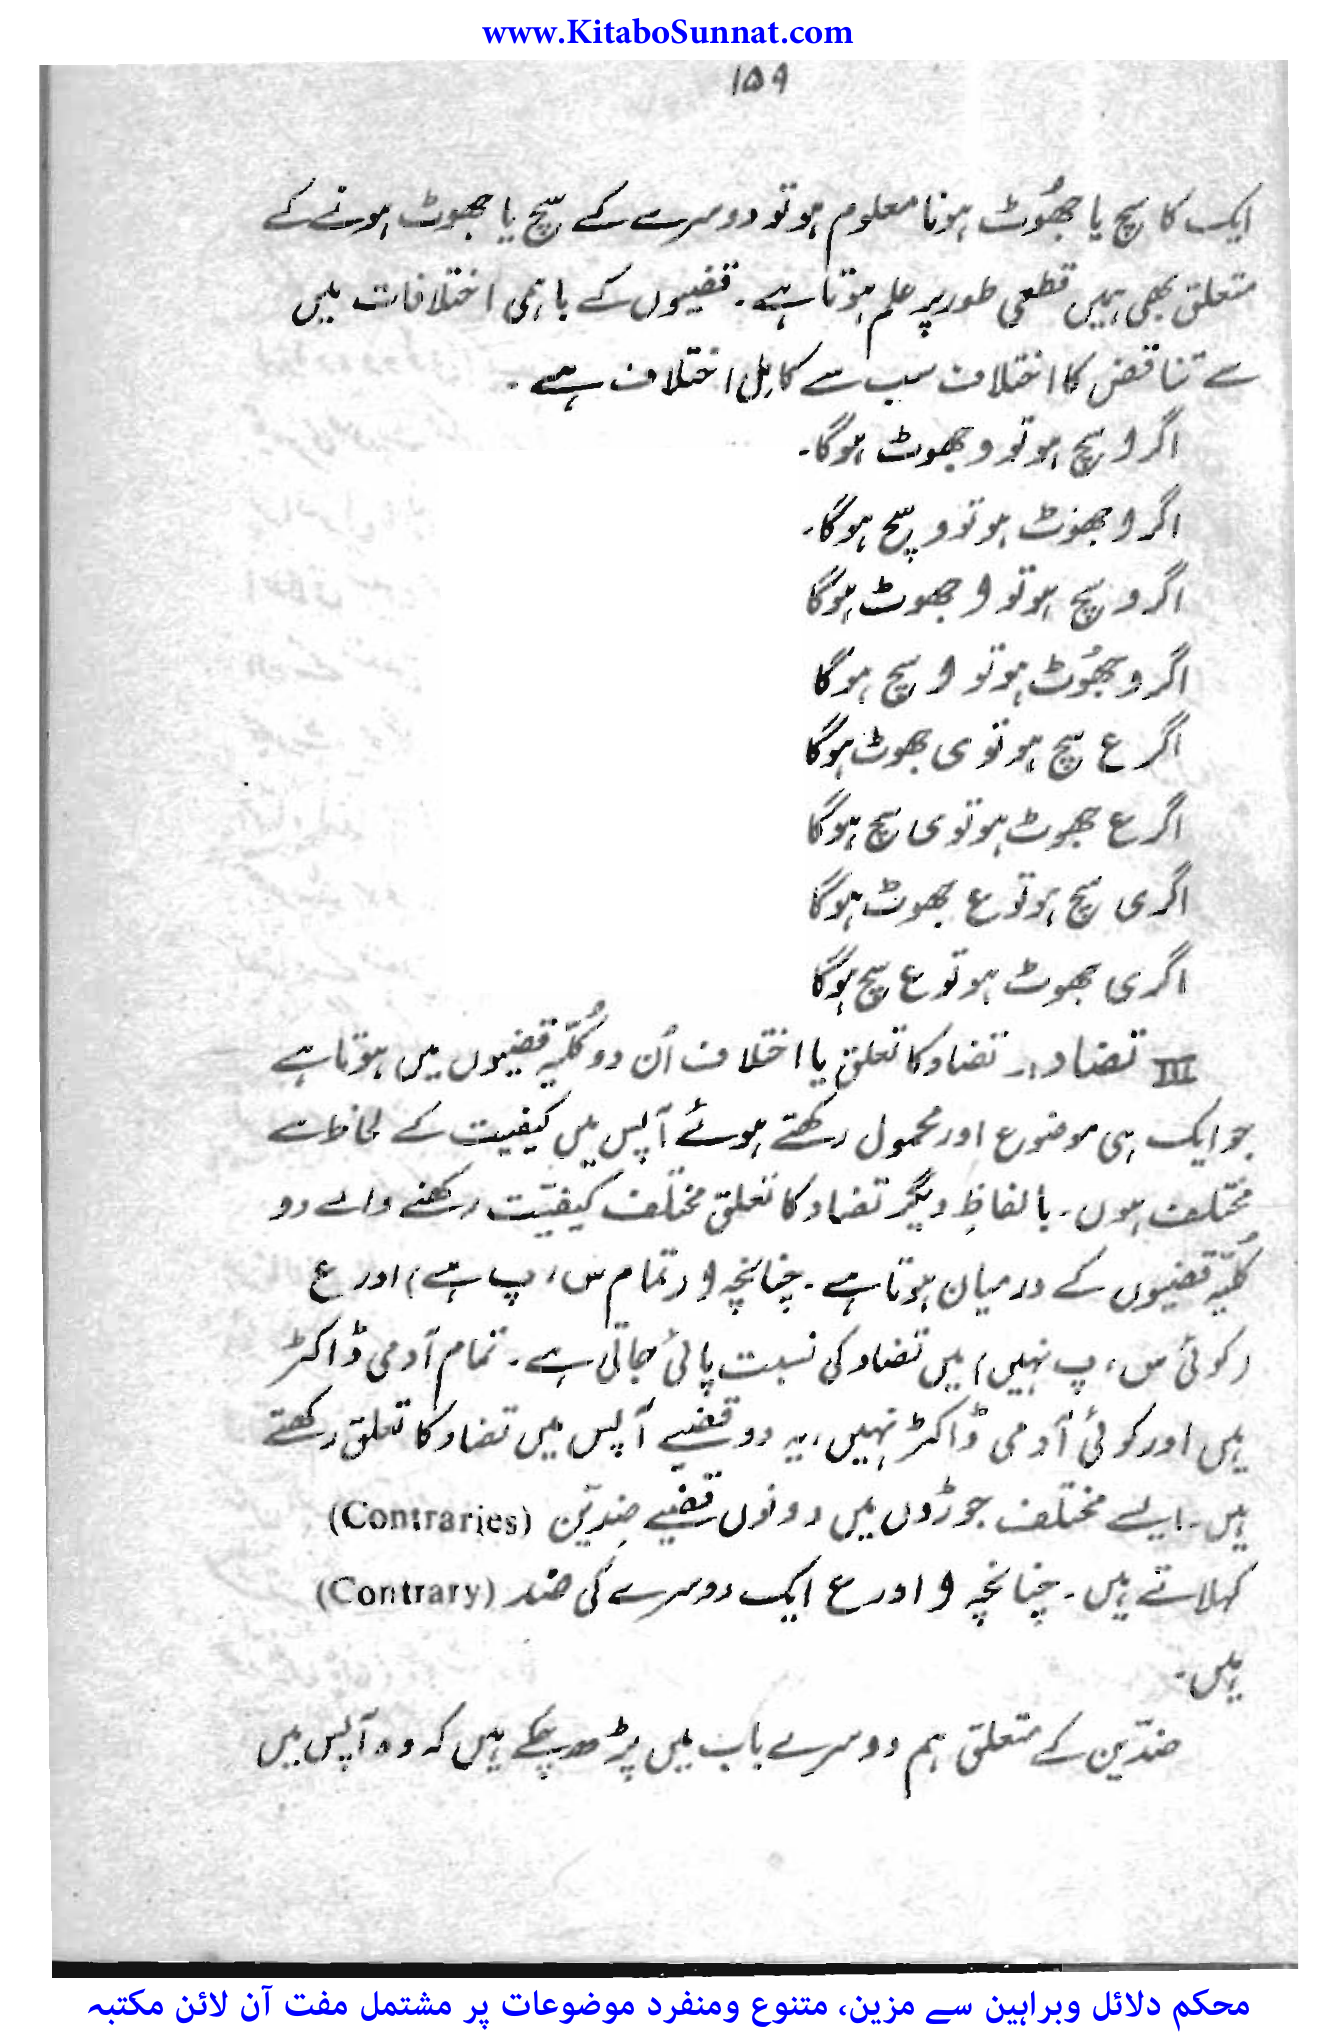 www.KitaboSunnat.com
۱۵۹
ایک کا سچ یا جھُوٹ ہونا معلوم ہو تو دوسرے کے سچ یا جھوٹ ہونے کے
متعلق بھی ہمیں قطعی طور پر علم ہوتا ہے۔ قضیوں کے باہمی اختلافات میں
سے تناقض کا اختلاف سب سے کامِل اختلاف ہے۔
اگر ا سچ ہو تو و جھوٹ ہوگا۔
اگر ا جھوٹ ہو تو و سچ ہوگا۔
اگر و سچ ہو تو ا جھوٹ ہوگا
اگر و جھُوٹ ہو تو ا سچ ہوگا
اگر ع سچ ہو تو ی جھوٹ ہوگا
اگر ع جھوٹ ہو تو ی سچ ہوگا
اگر ی سچ ہو تو ع جھوٹ ہوگا
اگر ی جھوٹ ہو تو ع سچ ہوگا
III تضاد:۔ تضاد کا تعلق یا اختلاف اُن دو کُلیّہ قضیوں میں ہوتا ہے
جو ایک ہی موضوع اور محمول رکھتے ہوئے آپس میں کیفیت کے لحاظ سے
مختلف ہوں۔ بالفاظِ دیگر تضاد کا تعلق مختلف کیفیّت رکھنے والے دو
کُلیّہ قضیوں کے درمیان ہوتا ہے۔ چنانچہ ا (تمام س، پ ہے) اور ع
(کوئی س، پ نہیں) میں تضاد کی نسبت پائی جاتی ہے۔ تمام آدمی ڈاکٹر
ہیں اور کوئی آدمی ڈاکٹر نہیں، یہ دو قضیے آپس میں تضاد کا تعلق رکھتے
ہیں۔ ایسے مختلف جوڑوں میں دونوں قضیے ضِدیّن (Contraries)
کہلاتے ہیں۔ چنانچہ ا اور ع ایک دوسرے کی ضد (Contrary)
ہیں۔
ضدّین کے متعلق ہم دوسرے باب میں پڑھ چکے ہیں کہ وہ آپس میں
محکم دلائل وبراہین سے مزین، متنوع ومنفرد موضوعات پر مشتمل مفت آن لائن مکتبہ